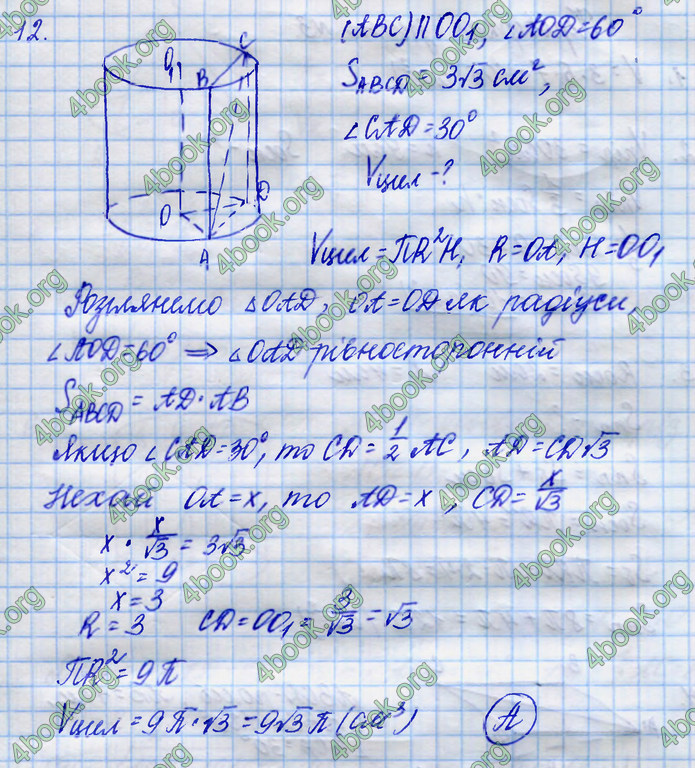 12.
(ABC) || OO₁, ∠AOD = 60°
S_ABCD = 3√3 см²,
∠CAD = 30°
Vцил - ?
O₁ C
B
O D
A
Vцил = ПR²H, R = OA, H = OO₁
Розглянемо △OAD, OA = OD як радіуси,
∠AOD = 60° ⟹ △OAD рівносторонній
S_ABCD = AD · AB
Якщо ∠CAD = 30°, то CD = 1/2 AC, AD = CD√3
Нехай OA = x, то AD = x, CD = x/√3
x · x/√3 = 3√3
x² = 9
x = 3
R = 3 CD = OO₁ = 3/√3 = √3
ПR² = 9П
Vцил = 9П · √3 = 9√3 П (см³) А
4book.org